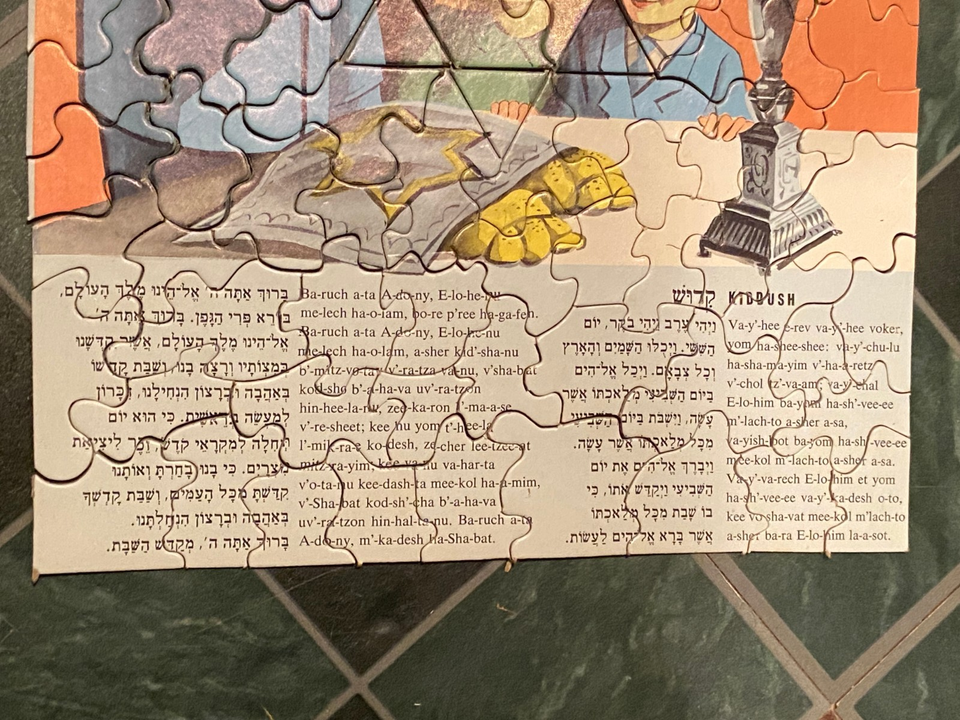 קִדּוּשׁ KIDDUSH
וַיְהִי עֶרֶב וַיְהִי בֹקֶר, יוֹם
הַשִּׁשִּׁי. וַיְכֻלּוּ הַשָּׁמַיִם וְהָאָרֶץ
וְכָל צְבָאָם. וַיְכַל אֱל־הִים
בַּיּוֹם הַשְּׁבִיעִי מְלַאכְתּוֹ אֲשֶׁר
עָשָׂה, וַיִּשְׁבֹּת בַּיּוֹם הַשְּׁבִיעִי
מִכָּל מְלַאכְתּוֹ אֲשֶׁר עָשָׂה.
וַיְבָרֶךְ אֱל־הִים אֶת יוֹם
הַשְּׁבִיעִי וַיְקַדֵּשׁ אֹתוֹ, כִּי
בוֹ שָׁבַת מִכָּל מְלַאכְתּוֹ
אֲשֶׁר בָּרָא אֱל־הִים לַעֲשׂוֹת.
Va-y'-hee e-rev va-y'-hee voker,
yom ha-shee-shee: va-y'-chu-lu
ha-sha-ma-yim v'-ha-a-retz
v'-chol tz'-va-am; va-y'-chal
E-lo-him ba-yom ha-sh'-vee-ee
m'-lach-to a-sher a-sa,
va-yish-bot ba-yom ha-sh'-vee-ee
mee-kol m'-lach-to a-sher a-sa.
Va-y'-va-rech E-lo-him et yom
ha-sh'-vee-ee va-y'-ka-desh o-to,
kee vo sha-vat mee-kol m'lach-to
a-sher ba-ra E-lo-him la-a-sot.
בָּרוּךְ אַתָּה ה' אֱל־הֵינוּ מֶלֶךְ הָעוֹלָם,
בּוֹרֵא פְּרִי הַגָּפֶן. בָּרוּךְ אַתָּה ה'
אֱל־הֵינוּ מֶלֶךְ הָעוֹלָם, אֲשֶׁר קִדְּשָׁנוּ
בְּמִצְוֹתָיו וְרָצָה בָנוּ, וְשַׁבַּת קָדְשׁוֹ
בְּאַהֲבָה וּבְרָצוֹן הִנְחִילָנוּ, זִכָּרוֹן
לְמַעֲשֵׂה בְרֵאשִׁית. כִּי הוּא יוֹם
תְּחִלָּה לְמִקְרָאֵי קֹדֶשׁ, זֵכֶר לִיצִיאַת
מִצְרָיִם. כִּי בָנוּ בָחַרְתָּ וְאוֹתָנוּ
קִדַּשְׁתָּ מִכָּל הָעַמִּים, וְשַׁבַּת קָדְשְׁךָ
בְּאַהֲבָה וּבְרָצוֹן הִנְחַלְתָּנוּ.
בָּרוּךְ אַתָּה ה', מְקַדֵּשׁ הַשַּׁבָּת.
Ba-ruch a-ta A-do-ny, E-lo-he-nu
me-lech ha-o-lam, bo-re p'ree ha-ga-fen.
Ba-ruch a-ta A-do-ny, E-lo-he-nu
me-lech ha-o-lam, a-sher kid'-sha-nu
b'-mitz-vo-tav v'-ra-tza va-nu, v'sha-bat
kod-sho b'-a-ha-va uv'-ra-tzon
hin-hee-la-nu, zee-ka-ron l'-ma-a-se
v'-re-sheet; kee hu yom t'-hee-la
l'-mik-ra-e ko-desh, ze-cher lee-tzee-at
mitz-ra-yim; kee va-nu va-har-ta
v'o-ta-nu kee-dash-ta mee-kol ha-a-mim,
v'-Sha-bat kod-sh'-cha b'-a-ha-va
uv'-ra-tzon hin-hal-ta-nu. Ba-ruch a-ta
A-do-ny, m'-ka-desh ha-Sha-bat.